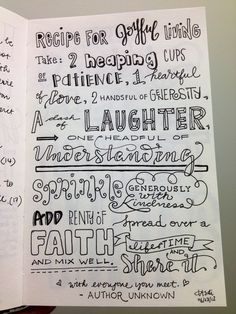 RECIPE FOR Joyful LIVING
Take: 2 heaping CUPS
OF PATIENCE, 1 heartful
of Love, 2 HANDSFUL OF GENEROSITY,
A dash of LAUGHTER,
ONE HEADFUL OF
Understanding
SPRINKLE GENEROUSLY with Kindness
ADD PLENTY OF FAITH AND MIX WELL.
Spread over a lifeTIME AND Share it
with everyone you meet.
- AUTHOR UNKNOWN